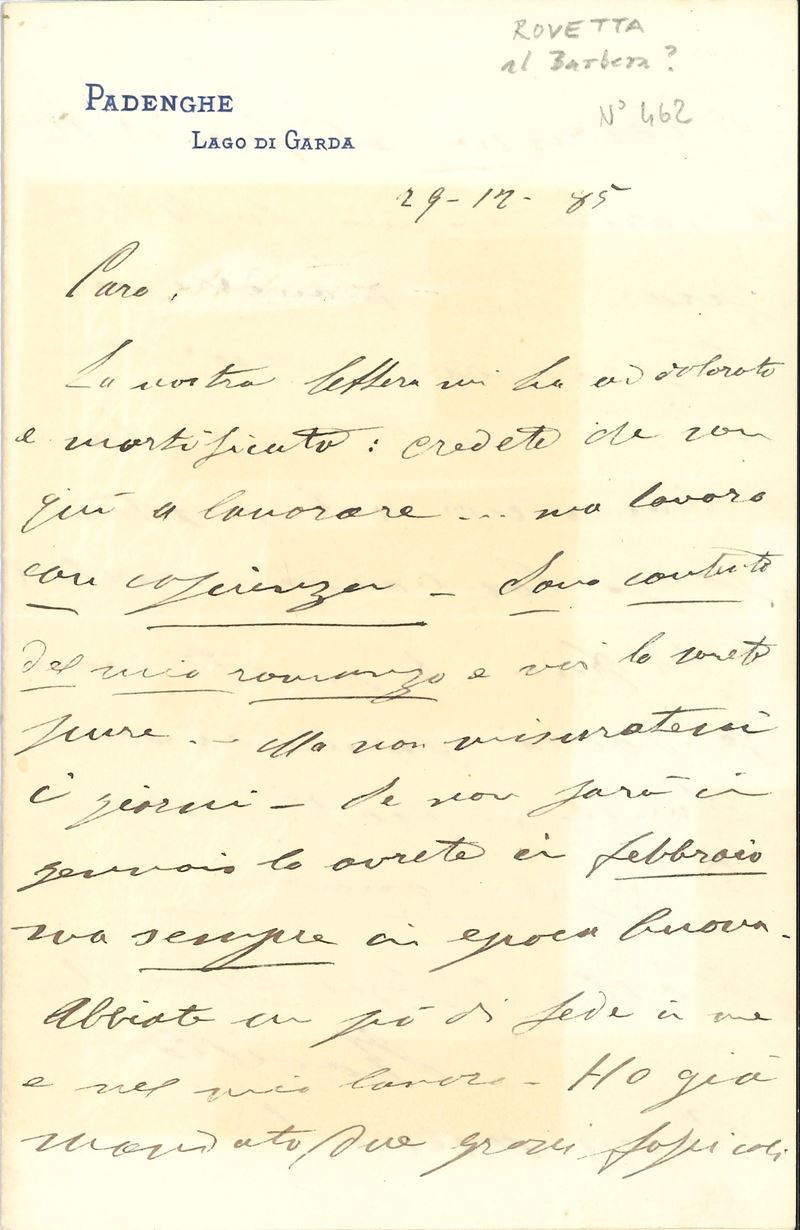 ROVETTA
al Barbera?
N° 462
PADENGHE
LAGO DI GARDA
29-12-85
Caro,
La vostra lettera mi ha addolorato
e mortificato: credete che son
qui a lavorare... ma lavoro
con coscienza - Sono contento
del mio romanzo e voi lo sarete
pure. - Ma non misuratemi
i giorni - Se non sarà in
gennaio lo avrete in febbraio
ma sempre in epoca buona.
Abbiate un pò di fede in me
e nel mio lavoro - Ho già
mandato due grossi fascicoli